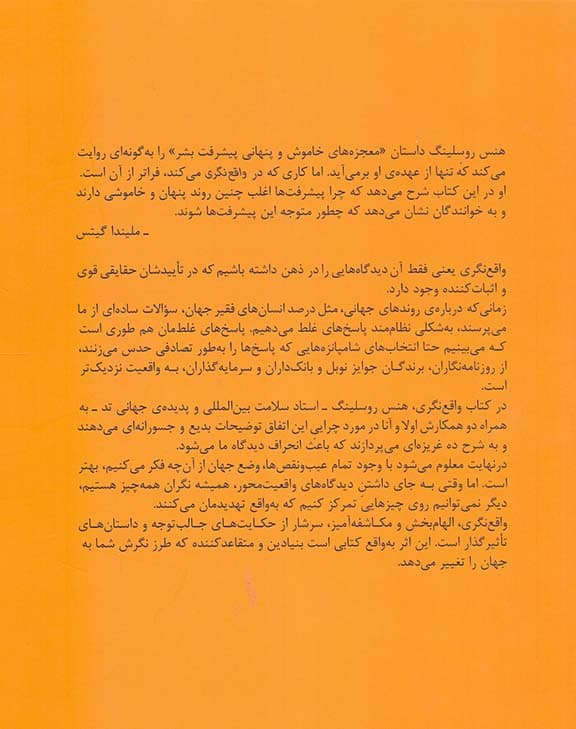 هنس روسلینگ داستان «معجزه‌های خاموش و پنهانی پیشرفت بشر» را به‌گونه‌ای روایت
می‌کند که تنها از عهده‌ی او برمی‌آید. اما کاری که در واقع‌نگری می‌کند، فراتر از آن است.
او در این کتاب شرح می‌دهد که چرا پیشرفت‌ها اغلب چنین روند پنهان و خاموشی دارند
و به خوانندگان نشان می‌دهد که چطور متوجه این پیشرفت‌ها شوند.
ـ ملیندا گیتس
واقع‌نگری یعنی فقط آن دیدگاه‌هایی را در ذهن داشته باشیم که در تأییدشان حقایقی قوی
و اثبات‌کننده وجود دارد.
زمانی‌که درباره‌ی روندهای جهانی، مثل درصد انسان‌های فقیر جهان، سؤالات ساده‌ای از ما
می‌پرسند، به‌شکلی نظام‌مند پاسخ‌های غلط می‌دهیم. پاسخ‌های غلط‌مان هم طوری است
که می‌بینیم حتا انتخاب‌های شامپانزه‌هایی که پاسخ‌ها را به‌طور تصادفی حدس می‌زنند،
از روزنامه‌نگاران، برندگان جوایز نوبل و بانک‌داران و سرمایه‌گذاران، به واقعیت نزدیک‌تر
است.
در کتاب واقع‌نگری، هنس روسلینگ ـ استاد سلامت بین‌المللی و پدیده‌ی جهانی تد ـ به
همراه دو همکارش اولا و آنا در مورد چرایی این اتفاق توضیحات بدیع و جسورانه‌ای می‌دهند
و به شرح ده غریزه‌ای می‌پردازند که باعث انحراف دیدگاه ما می‌شود.
درنهایت معلوم می‌شود با وجود تمام عیب‌ونقص‌ها، وضع جهان از آن‌چه فکر می‌کنیم، بهتر
است. اما وقتی به جای داشتن دیدگاه‌های واقعیت‌محور، همیشه نگران همه‌چیز هستیم،
دیگر نمی‌توانیم روی چیزهایی تمرکز کنیم که به‌واقع تهدیدمان می‌کنند.
واقع‌نگری، الهام‌بخش و مکاشفه‌آمیز، سرشار از حکایت‌های جالب‌توجه و داستان‌های
تأثیرگذار است. این اثر به‌واقع کتابی است بنیادین و متقاعدکننده که طرز نگرش شما به
جهان را تغییر می‌دهد.